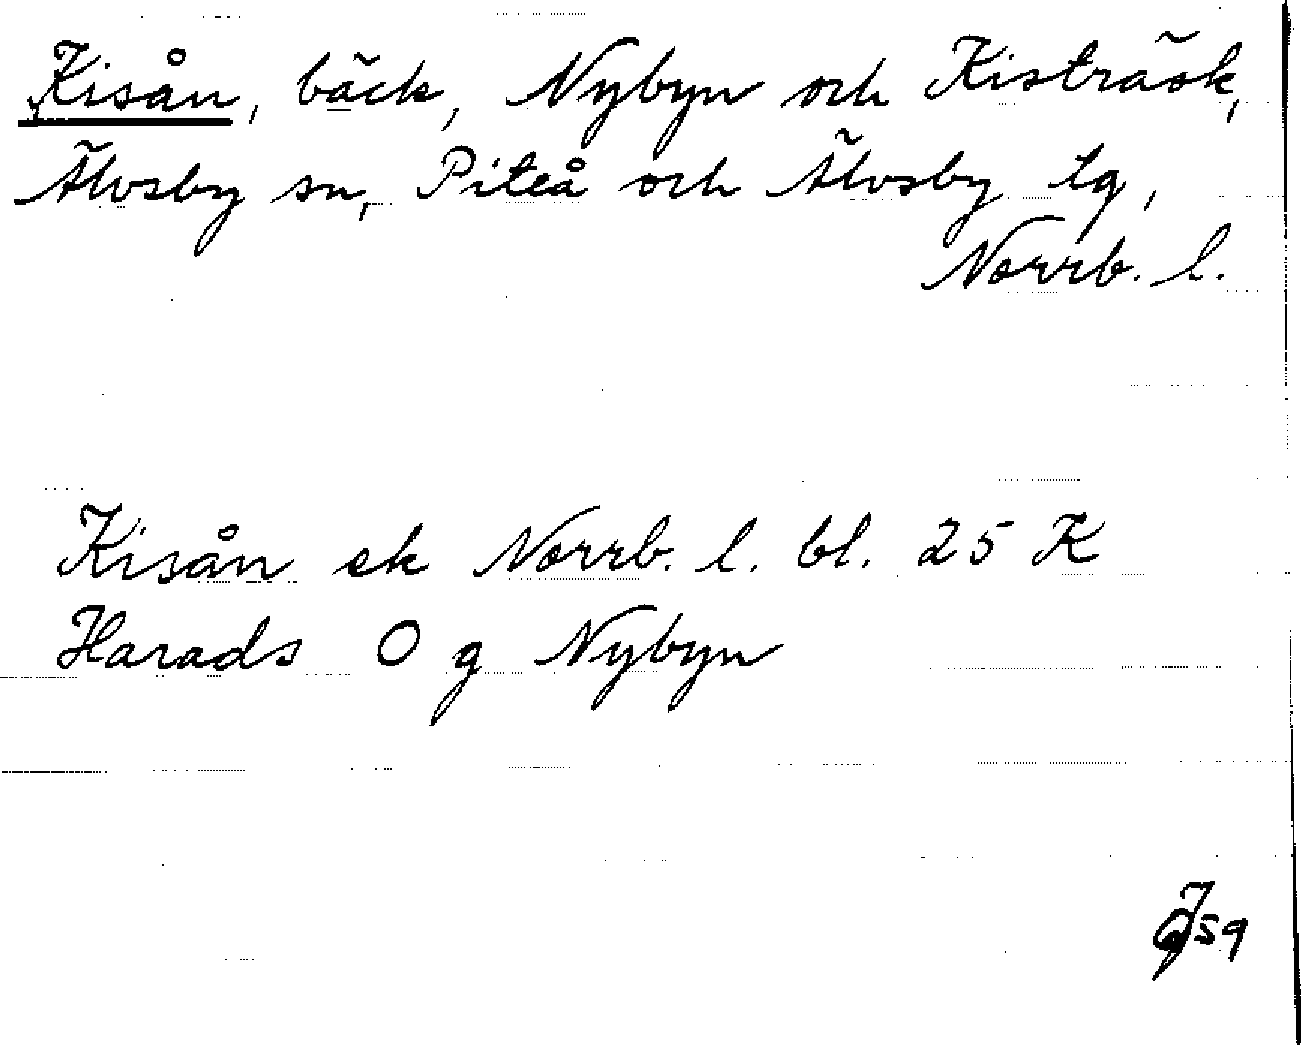 Kisån, bäck, Nybyn och Kisträsk,
Älvsby sn, Piteå och Älvsby tg,
Norrb. l.
Kisån ek Norrb. l. bl. 25 K
Harads O g Nybyn